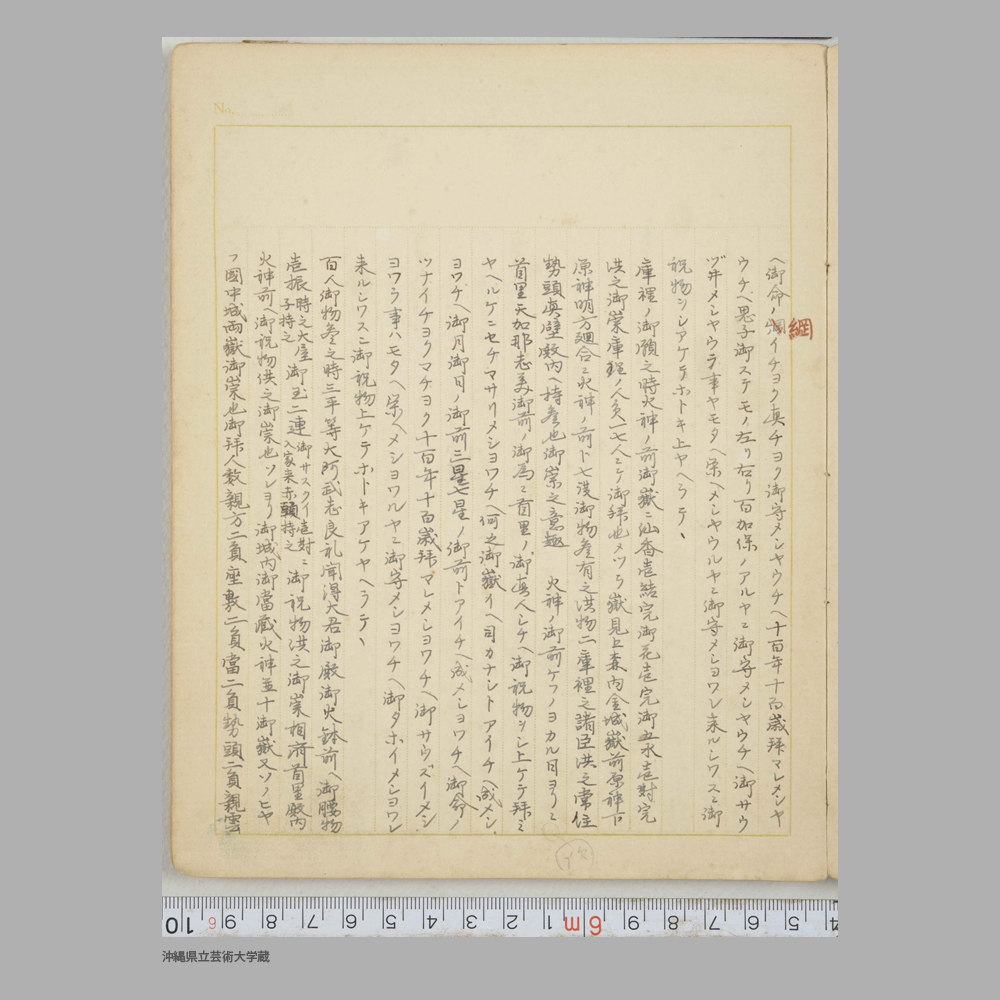 No.
ヘ御命ノ綱イチヨク真チヨク御守メシヤウチヘ十百年十百歳拝マレメシヤ
綱
ウチヘ思子御ステモノ左リ右リ百加保ノアルヤニ御守メシヤウチヘ御サウ
ヅヰメシヤウラ事ヤモタヘ栄ヘメシヤウルヤニ御守メシヨワレ来ルシワスニ御
祝物ヲシアケテホトキ上ヤヘラテ、
庫裡ノ御願之時火神ノ前御嶽ニ仙香壱結完御花壱完御五水壱対完
洪之御崇庫裡ノ人負一七人ニテ御拝也メツラ嶽見上森内金城嶽前原神下
原神明方廻合ニ火神ノ前ト七度御物参有之洪物二庫裡之諸臣洪之常住
勢頭真壁殿内ヘ持参也御崇之意趣 火神ノ御前ケフノヨカル日ヨリニ
首里天加那志美御前ノ御為ニ首里ノ御真人シチヘ御祝物ヲシ上ケテ拝ミ
ヤヘルケニセチマサリメシヨワチヘ何之御嶽イヘ司カナシトアイチヘ成メシ
ヨワチヘ御月御日ノ御前三星七星ノ御前トアイチヘ成メシヨワチヘ御命ノ
ツナイチヨクマチヨク十百年十百歳拝マレメシヨワチヘ御サウズイメシ
ヨワラ事ハモタヘ栄ヘメシヨワルヤニ御守メシヨワチヘ御タホイメシヨワレ
来ルシワスニ御祝物上ケテホトキアケヤヘラテヽ
百人御物参之時三平等大阿武志良礼聞得大君御殿御火鉢前ヘ御腰物
壱振時之大屋子持之御玉二連御サスクイ壱対入家来赤頭持之ニ御祝物洪之御崇相済首里殿内
火神前ヘ御祝物洪之御崇也ソレヨリ御城内御当蔵火神並十御嶽又ソノヒヤ
フ國中城両嶽御崇也御拝人数親方二負座敷二負當二負勢頭二負親雲
沖縄県立芸術大学蔵